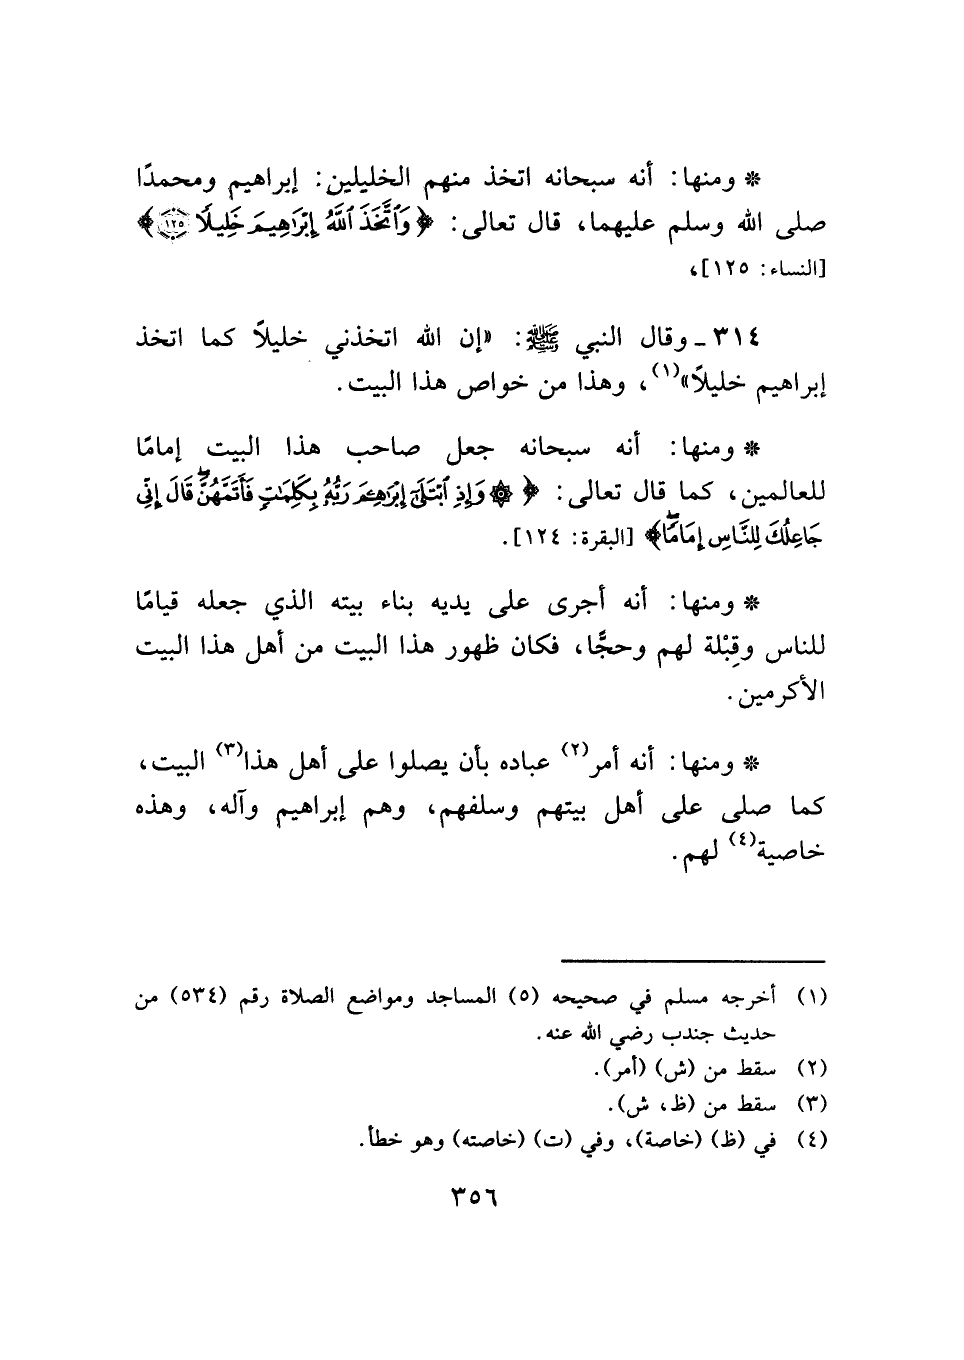 * ومنها: أنه سبحانه اتخذ منهم الخليلين: إبراهيم ومحمدًا
صلى الله وسلم عليهما، قال تعالى: ﴿وَٱتَّخَذَ ٱللَّهُ إِبْرَٰهِيمَ خَلِيلًا ١٢٥﴾
[النساء: ١٢٥]،
٣١٤ ـ وقال النبي ﷺ: «إن الله اتخذني خليلاً كما اتخذ
إبراهيم خليلاً»(١)، وهذا من خواص هذا البيت.
* ومنها: أنه سبحانه جعل صاحب هذا البيت إمامًا
للعالمين، كما قال تعالى: ﴿ ۞ وَإِذِ ٱبْتَلَىٰٓ إِبْرَٰهِـۧمَ رَبُّهُۥ بِكَلِمَٰتٖ فَأَتَمَّهُنَّۖ قَالَ إِنِّي
جَاعِلُكَ لِلنَّاسِ إِمَامٗاۖ﴾ [البقرة: ١٢٤].
* ومنها: أنه أجرى على يديه بناء بيته الذي جعله قيامًا
للناس وقِبْلة لهم وحجًّا، فكان ظهور هذا البيت من أهل هذا البيت
الأكرمين.
* ومنها: أنه أمر(٢) عباده بأن يصلوا على أهل هذا(٣) البيت،
كما صلى على أهل بيتهم وسلفهم، وهم إبراهيم وآله، وهذه
خاصية(٤) لهم.
(١) أخرجه مسلم في صحيحه (٥) المساجد ومواضع الصلاة رقم (٥٣٤) من
حديث جندب رضي الله عنه.
(٢) سقط من (ش) (أمر).
(٣) سقط من (ظ، ش).
(٤) في (ظ) (خاصة)، وفي (ت) (خاصته) وهو خطأ.
٣٥٦